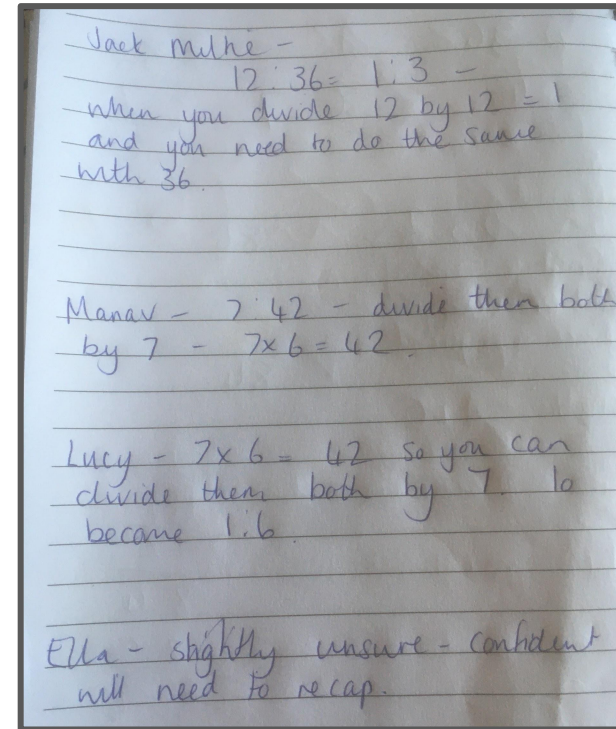 Jack Milne -
12 : 36 = 1 : 3 -
when you divide 12 by 12 = 1
and you need to do the same
with 36.
Manav - 7 : 42 - divide them both
by 7 - 7x6 = 42.
Lucy - 7x6 = 42 so you can
divide them both by 7. to
become 1:6.
Ella - slightly unsure - confident
will need to recap.